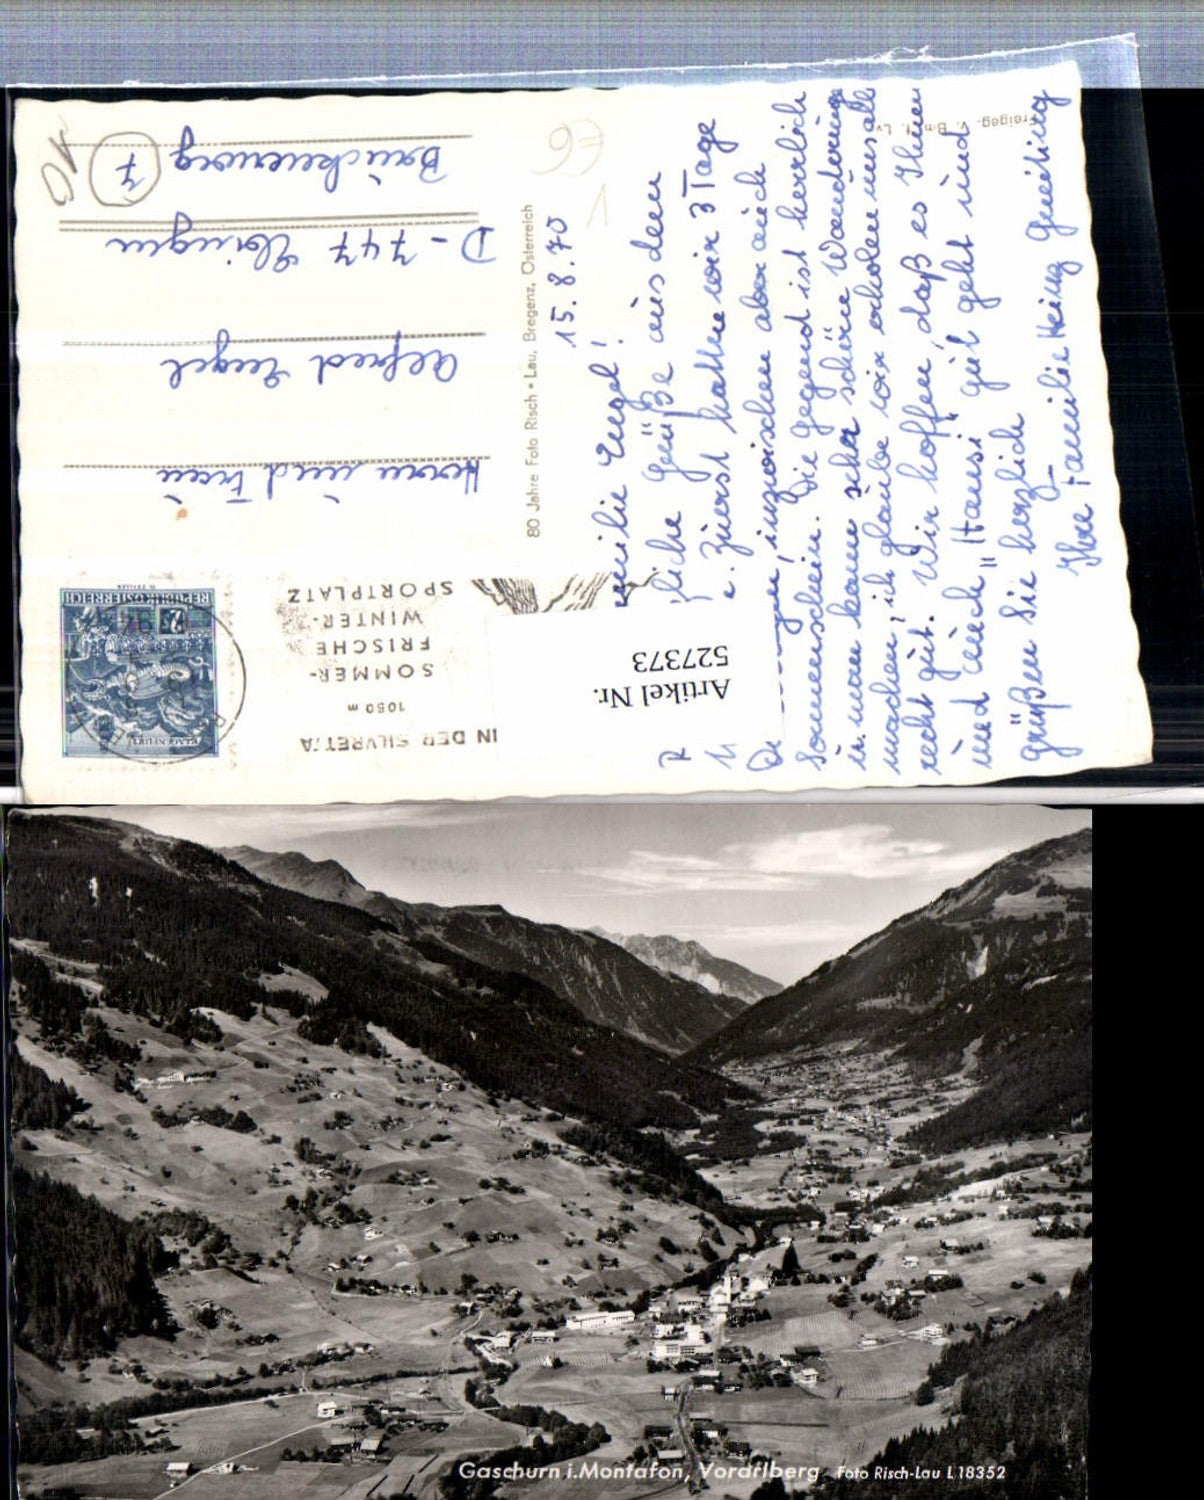 IN DER SILVRETTA
1050 m
SOMMER-
FRISCHE
WINTER-
SPORTPLATZ
REPUBLIK ÖSTERREICH
KLAGENFURT
Herrn und Frau
Alfred Engel
D-747 Ebingen
Brückenweg 7
10
E6
80 Jahre Foto Risch • Lau, Bregenz, Österreich
Artikel Nr.
527373
15.8.70
milie Engel!
liche Grüße aus dem
. Zuerst hatten wir 3 Tage
, inzwischen aber auch
Sonnenschein. Die Gegend ist herrlich
u. man kann schöne Wanderungen
machen, ich glaube wir erholen uns alle
recht gut. Wir hoffen, daß es Ihnen
und auch "Hansi" gut geht und
grüßen Sie herzlich
Ihre Familie Heinz
Freigeg. v. Bm. f. Lv.
Gaschurn i. Montafon, Vorarlberg Foto Risch-Lau L18352